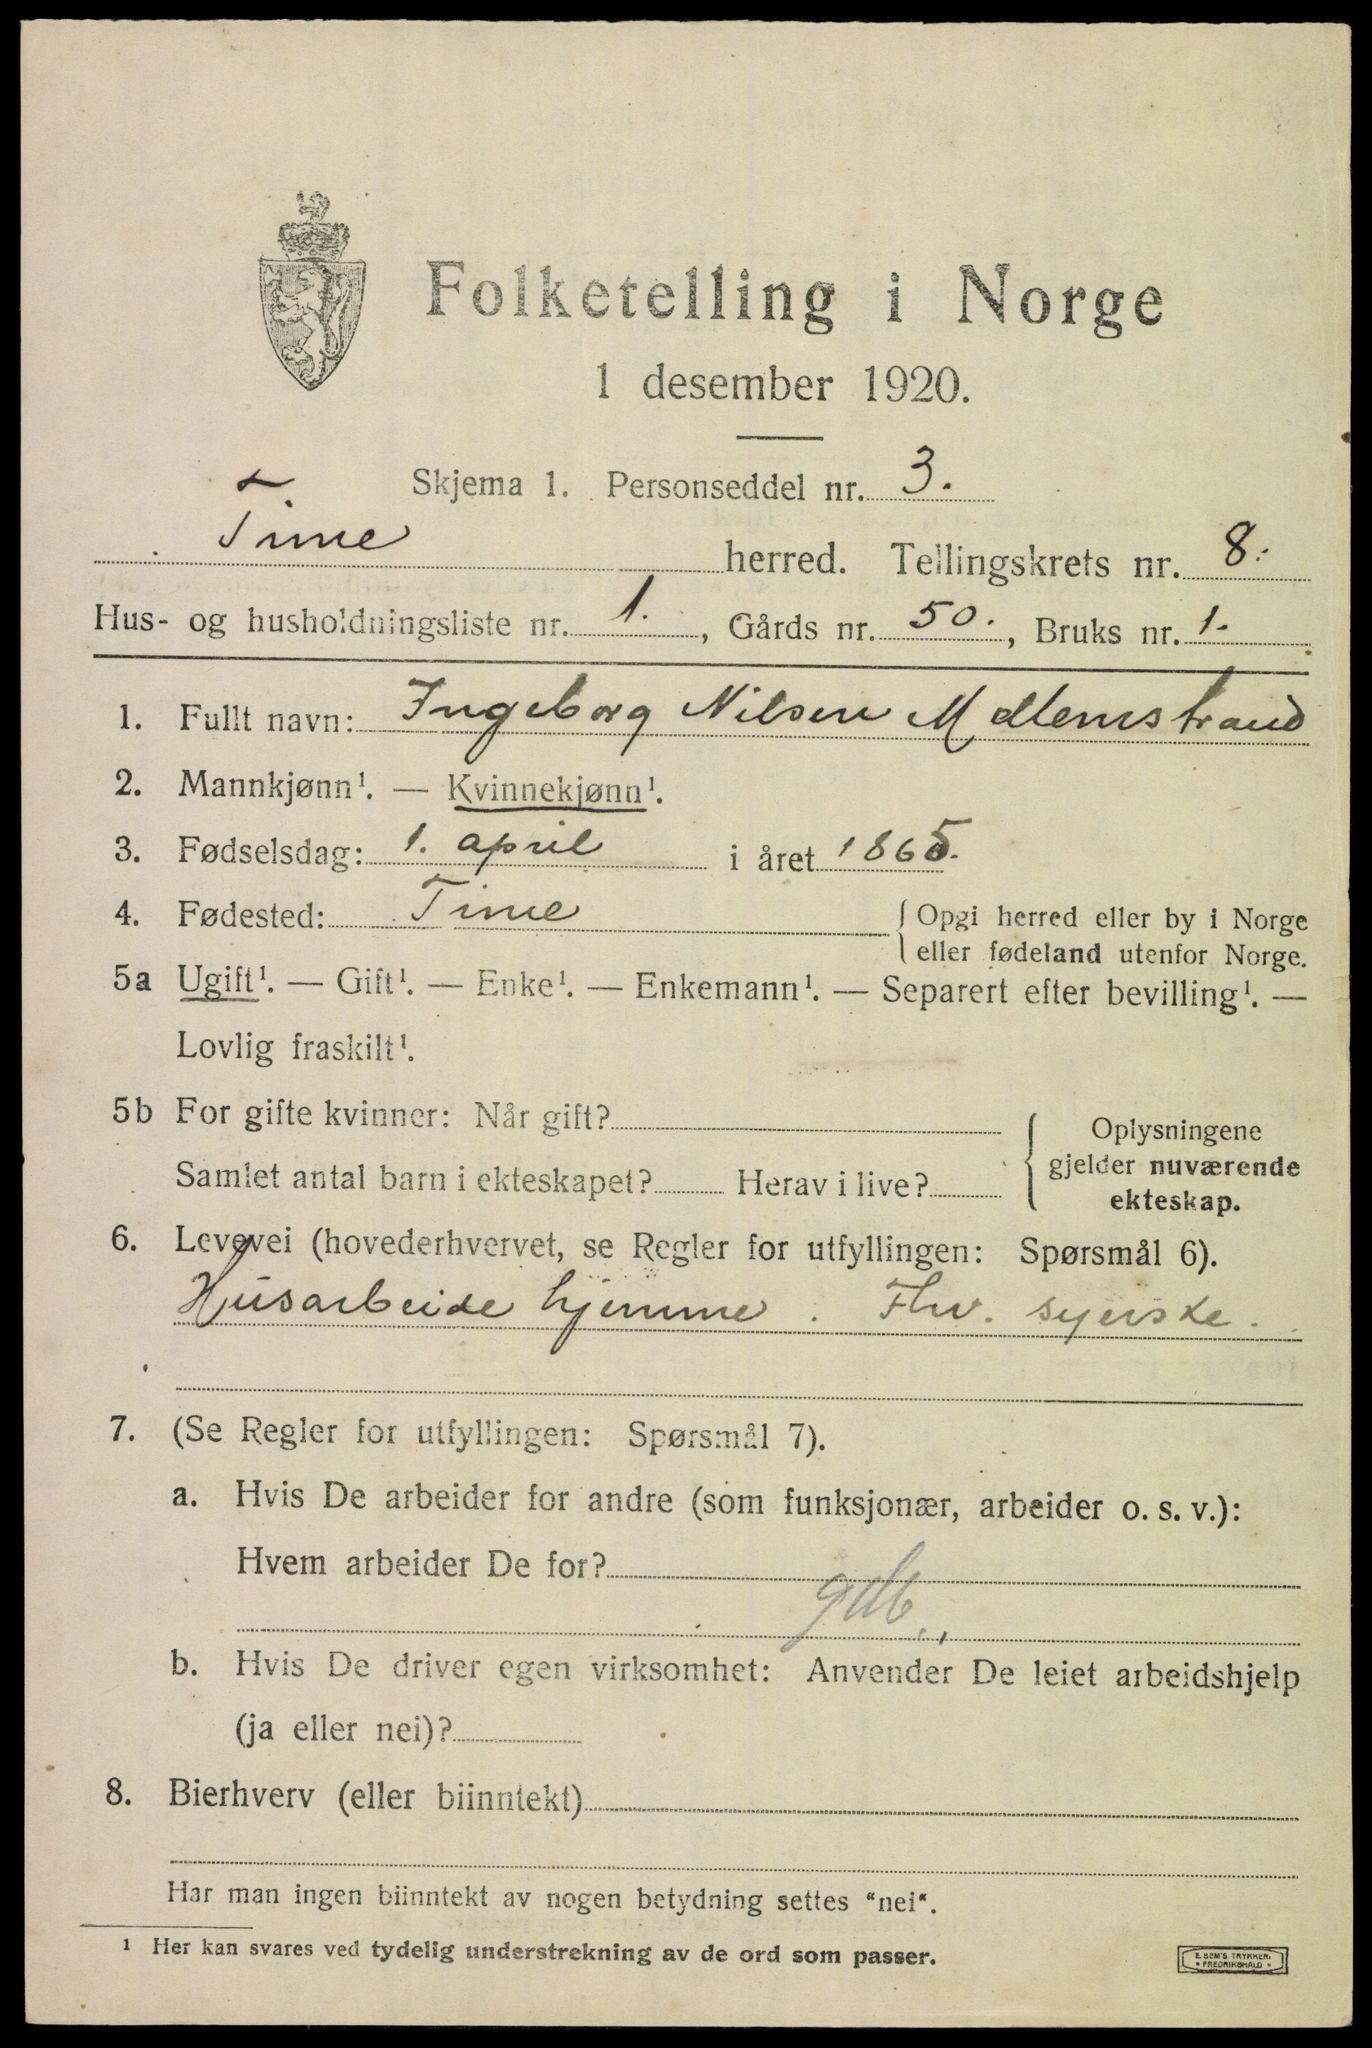 Folketelling i Norge
1 desember 1920.
Skjema 1. Personseddel nr. 3.
Time herred. Tellingskrets nr. 8.
Hus- og husholdningsliste nr. 1., Gårds nr. 50., Bruks nr. 1.
1. Fullt navn: Ingeborg Nilsen Mellemstrand
2. Mannkjønn¹. — Kvinnekjønn¹.
3. Fødselsdag: 1. april i året 1865.
4. Fødested: Time { Opgi herred eller by i Norge
eller fødeland utenfor Norge.
5a Ugift¹. — Gift¹. — Enke¹. — Enkemann¹. — Separert efter bevilling¹. —
Lovlig fraskilt¹.
5b For gifte kvinner: Når gift?
Samlet antal barn i ekteskapet? Herav i live?
Oplysningene
gjelder nuværende
ekteskap.
6. Levevei (hovederhvervet, se Regler for utfyllingen: Spørsmål 6).
Husarbeide hjemme. Fhv. syerske.
7. (Se Regler for utfyllingen: Spørsmål 7).
a. Hvis De arbeider for andre (som funksjonær, arbeider o. s. v.):
Hvem arbeider De for?
b. Hvis De driver egen virksomhet: Anvender De leiet arbeidshjelp
(ja eller nei)?
8. Bierhverv (eller biinntekt)
Har man ingen biinntekt av nogen betydning settes “nei“.
¹ Her kan svares ved tydelig understrekning av de ord som passer.
E. SEM'S TRYKKERI
* FREDRIKSHALD *